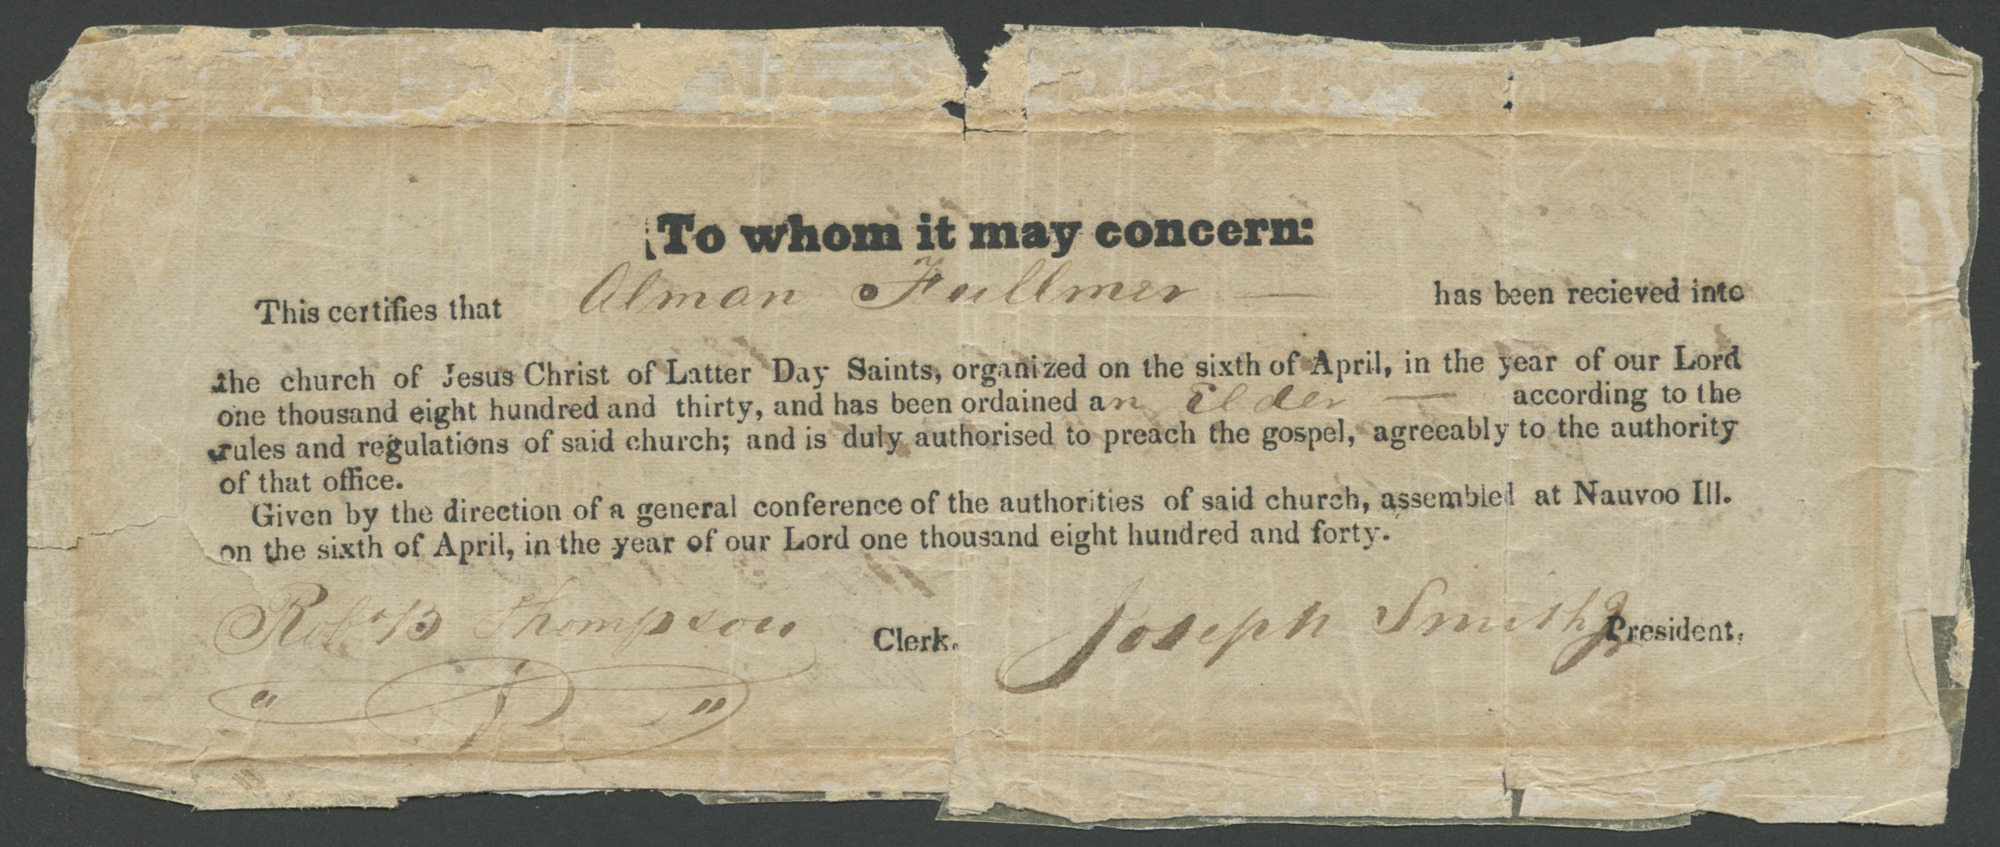 To whom it may concern:
This certifies that Alman Fullmer — has been recieved into
the church of Jesus Christ of Latter Day Saints, organized on the sixth of April, in the year of our Lord
one thousand eight hundred and thirty, and has been ordained an Elder — according to the
rules and regulations of said church; and is duly authorised to preach the gospel, agreeably to the authority
of that office.
Given by the direction of a general conference of the authorities of said church, assembled at Nauvoo Ill.
on the sixth of April, in the year of our Lord one thousand eight hundred and forty.
Robt B Thompson Clerk. Joseph Smith Jr President.